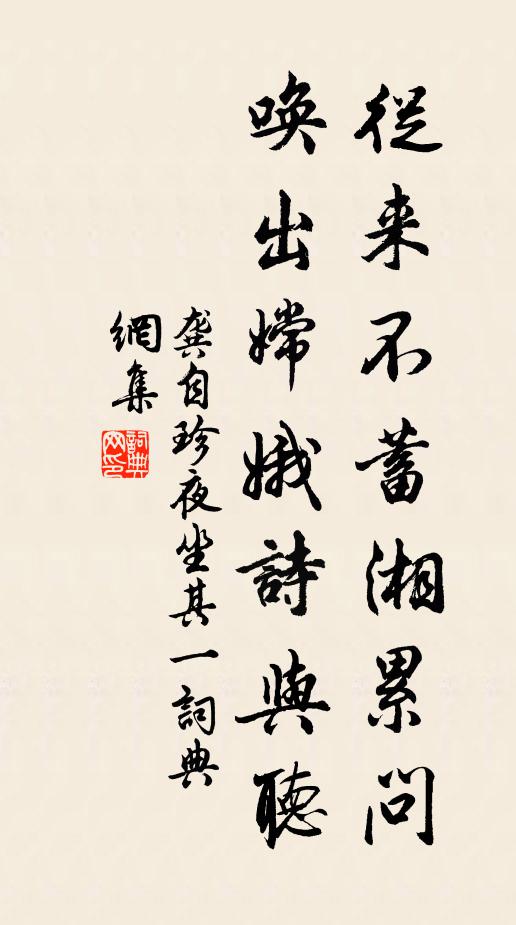 從来不蓄湘累問
喚出嫦娥詩與聽
龔自珍夜坐其一詞典
網集
詞典
网印